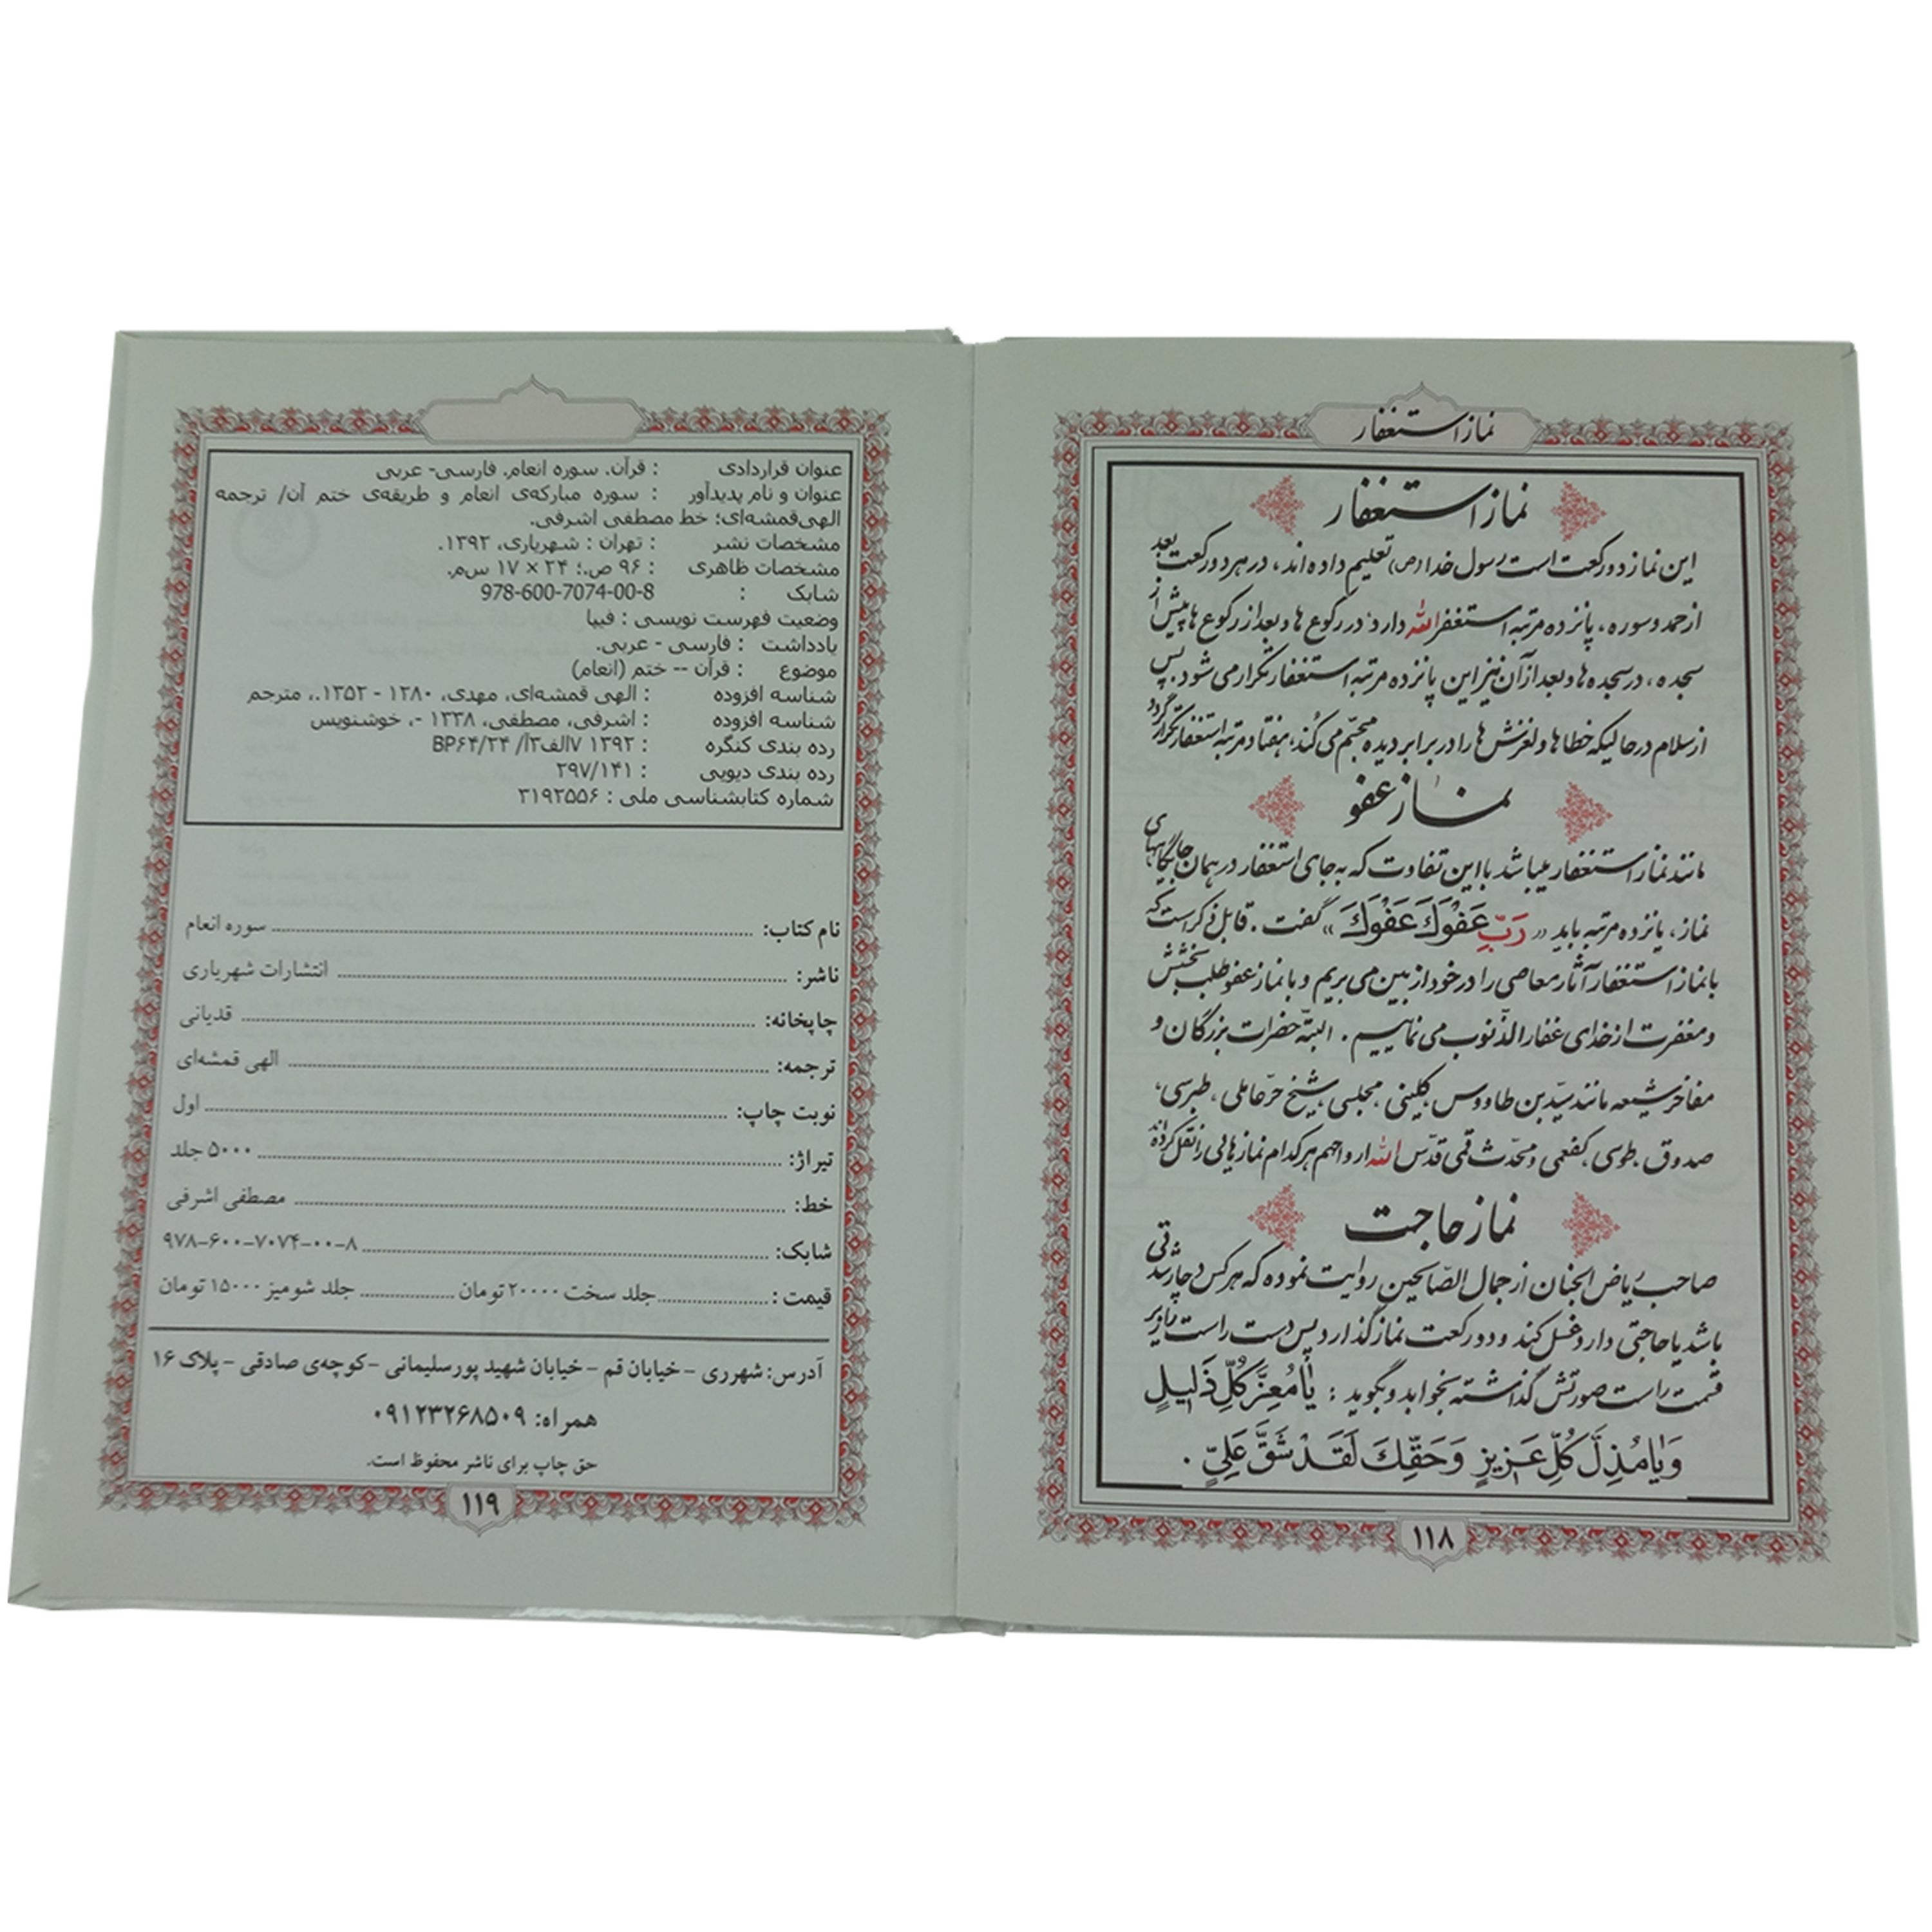 نماز استغفار
نماز استغفار
این نماز دو رکعت است رسول خدا (ص) تعلیم داده اند، در هر دو رکعت بعد
از حمد و سوره، پانزده مرتبه استغفر الله دارد؛ در رکوع ها و بعد از رکوع ها پیش از
سجده، در سجده ها و بعد از آن نیز این پانزده مرتبه استغفار تکرار می شود. پس
از سلام در حالیکه خطاها و لغزش ها را در برابر دیده مجسّم می کند، هفتاد مرتبه استغفار تکرار گردد
نماز عفو
مانند نماز استغفار میباشد با این تفاوت که به جای استغفار در همان جایگاههای
نماز، پانزده مرتبه باید «رَبِّ عَفْوَكَ عَفْوَكَ» گفت. قابل ذکر است که
با نماز استغفار آثار معاصی را در خود از بین می بریم و با نماز عفو طلب بخشش
و مغفرت از خدای غفار الذّنوب می نماییم. البتّه حضرات بزرگان و
مفاخر شیعه مانند سیّد بن طاووس، کلینی، مجلسی، شیخ حرّ عاملی، طبرسی،
صدوق، طوسی، کفعمی و محدّث قمی قدّس الله ارواحهم هر کدام نمازهایی را نقل کرده اند
نماز حاجت
صاحب ریاض الجنان از جمال الصّالحین روایت نموده که هر کس دچار شدقی
باشد یا حاجتی دارد غسل کند و دو رکعت نماز گذارد پس دست راست را زیر
قسمت راست صورتش گذاشته بخوابد و بگوید : يٰا مُعِزَّ كُلِّ ذَليلٍ
وَيٰا مُذِلَّ كُلِّ عَزيزٍ وَحَقِّكَ لَقَدْ شَقَّ عَلَيَّ .
۱۱۸
عنوان قراردادی : قرآن. سوره انعام. فارسی- عربی
عنوان و نام پدیدآور : سوره مبارکه‌ی انعام و طریقه‌ی ختم آن/ ترجمه
الهی‌قمشه‌ای؛ خط مصطفی اشرفی.
مشخصات نشر : تهران : شهریاری، ۱۳۹۲.
مشخصات ظاهری : ۹۶ ص.؛ ۲۴ × ۱۷ س‌م.
شابک : 978-600-7074-00-8
وضعیت فهرست نویسی : فیپا
یادداشت : فارسی - عربی.
موضوع : قرآن -- ختم (انعام)
شناسه افزوده : الهی قمشه‌ای، مهدی، ۱۲۸۰ - ۱۳۵۲.، مترجم
شناسه افزوده : اشرفی، مصطفی، ۱۳۳۸ -، خوشنویس
رده بندی کنگره : ۱۳۹۲ ۷الف۳آ/ BP۶۴/۲۴
رده بندی دیویی : ۲۹۷/۱۴۱
شماره کتابشناسی ملی : ۳۱۹۲۵۵۶
نام کتاب: سوره انعام
ناشر: انتشارات شهریاری
چاپخانه: قدیانی
ترجمه: الهی قمشه‌ای
نوبت چاپ: اول
تیراژ: ۵۰۰۰ جلد
خط: مصطفی اشرفی
شابک: ۹۷۸-۶۰۰-۷۰۷۴-۰۰-۸
قیمت: جلد سخت ۲۰۰۰۰ تومان جلد شومیز ۱۵۰۰۰ تومان
آدرس: شهرری - خیابان قم - خیابان شهید پورسلیمانی - کوچه‌ی صادقی - پلاک ۱۶
همراه: ۰۹۱۲۳۲۶۸۵۰۹
حق چاپ برای ناشر محفوظ است.
۱۱۹